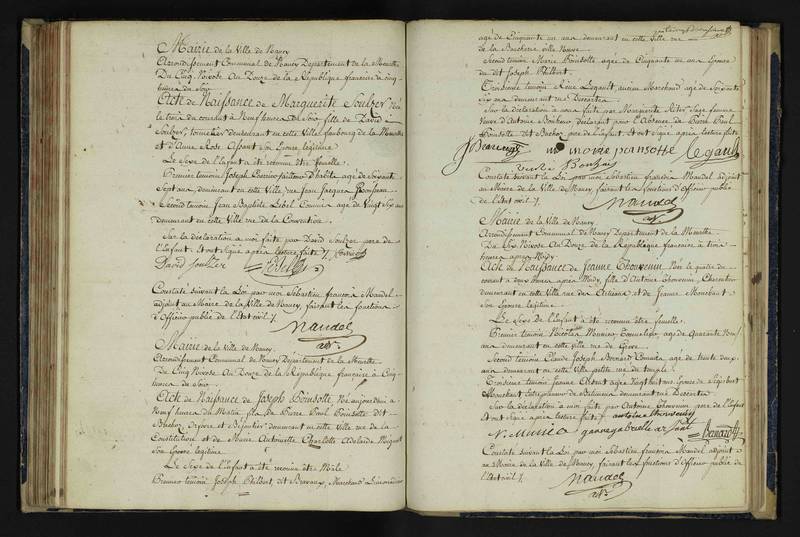 Mairie de la Ville de Nancy
Arrondissement Communal de Nancy Departement de la Meurthe
Du Cinq Nivose An Douze de la République française à Cinq
heures du Soir
Acte de Naissance de Marguerite Soulzer Née
le trois du courant à Neuf heures du Soir, fille de David
Soulzer, tonnelier demeurant en cette Ville faubourg de la
et d'Anne Rose son Epouse légitime
Le Sexe de l'Enfant a été reconnu être femelle
Premier temoin Joseph d'habits age de Soixante
Sept ans, demeurant en cette Ville, rue Jean Jacques Rousseau
Second temoin Jean Baptiste Lebel Commis age de Vingt Six ans
demeurant en cette Ville rue de la Convention
Sur la déclaration à moi faite par David Soulzer pere de
l'Enfant. Et ont signé après lecture faite
David Soulzer Lebel
Constaté suivant la Loi par moi Sébastien françois Mandel
adjoint au Maire de la Ville de Nancy, faisant les fonctions
d'Officier public de l'Etat civil
Mandel
adt.
Mairie de la Ville de Nancy
Arrondissement Communal de Nancy Departement de la Meurthe
Du Cinq Nivose An Douze de la République française à Cinq
heures du Soir
Acte de Naissance de Joseph Ponsotte Né aujourd'hui à
Neuf heures du Matin fils de Pierre Paul Ponsotte dit
Orfevre et Bijoutier demeurant en cette Ville rue de la
Constitution et de Marie Antoinette Charlotte Adelaide
Son Epouse legitime
Le Sexe de l'Enfant a été reconnu être Mâle
Premier temoin Joseph Philbert, dit Marchand
age de Cinquante un ans demeurant en cette Ville rue
de la Boucherie ville Neuve
Second temoin Marie Ponsotte age de Cinquante un ans Epouse
du dit Joseph Philbert
Troisieme temoin René Legault, ancien Marchand age de Soixante
Six ans demeurant rue Descartes
Sur la déclaration à nous faite par Marguerite Sage femme
Veuve d'Antoine déclarant pour l'Absence de Pierre Paul
Ponsotte dit pere de l'Enfant. Et ont Signé après lecture faite
marie ponsotte Legault
Constaté suivant la Loi par moi Sébastien françois Mandel adjoint
au Maire de la Ville de Nancy, faisant les fonctions d'Officier public
de l'Etat civil
Mandel
adt.
Mairie de la Ville de Nancy
Arrondissement Communal de Nancy Departement de la Meurthe
Du Six Nivose An Douze de la République française à trois
heures après Midy
Acte de Naissance de Jeanne Thouvenin Née le quatre du
courant à deux heures après Midy, fille d'Antoine Thouvenin, Charcutier
demeurant en cette Ville rue des Artisans et de Jeanne
Son Epouse légitime
Le Sexe de l'Enfant a été reconnu être femelle
Premier temoin Nicolas age de Quarante Neuf
ans demeurant en cette ville rue de Greve
Second temoin Claude Joseph Bernard Commis age de trente deux
ans demeurant en cette Ville petite rue du temple
Troisieme temoin Jeanne age Vingt huit ans Epouse de
Entrepreneur de Batimens demeurant rue Descartes
Sur la déclaration à moi faite par Antoine Thouvenin pere de l'Enfant
Et ont Signé après lecture faite antoine thouvenin
Bernard
Constaté suivant la Loi par moi Sébastien françois Mandel adjoint
au Maire de la Ville de Nancy, faisant les fonctions d'Officier public de
l'Etat civil
Mandel
adt.